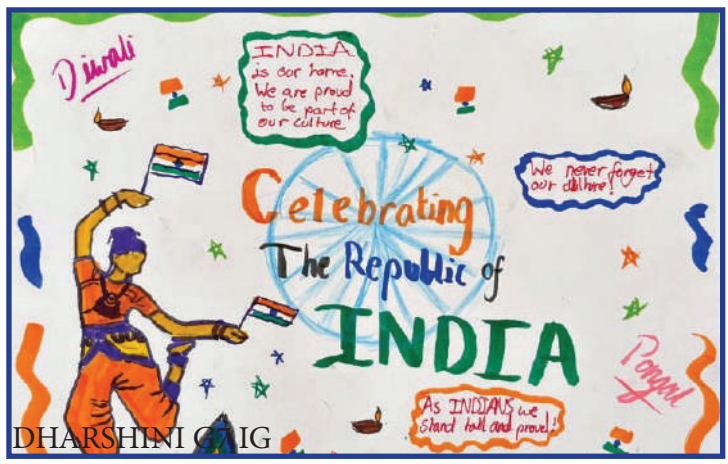 Diwali
INDIA
is our home.
We are proud
to be part of
our culture
We never forget
our culture!
Celebrating
The Republic of
INDIA
Pongal
As INDIANS we
stand tall and proud!
DHARSHINI G7 IG